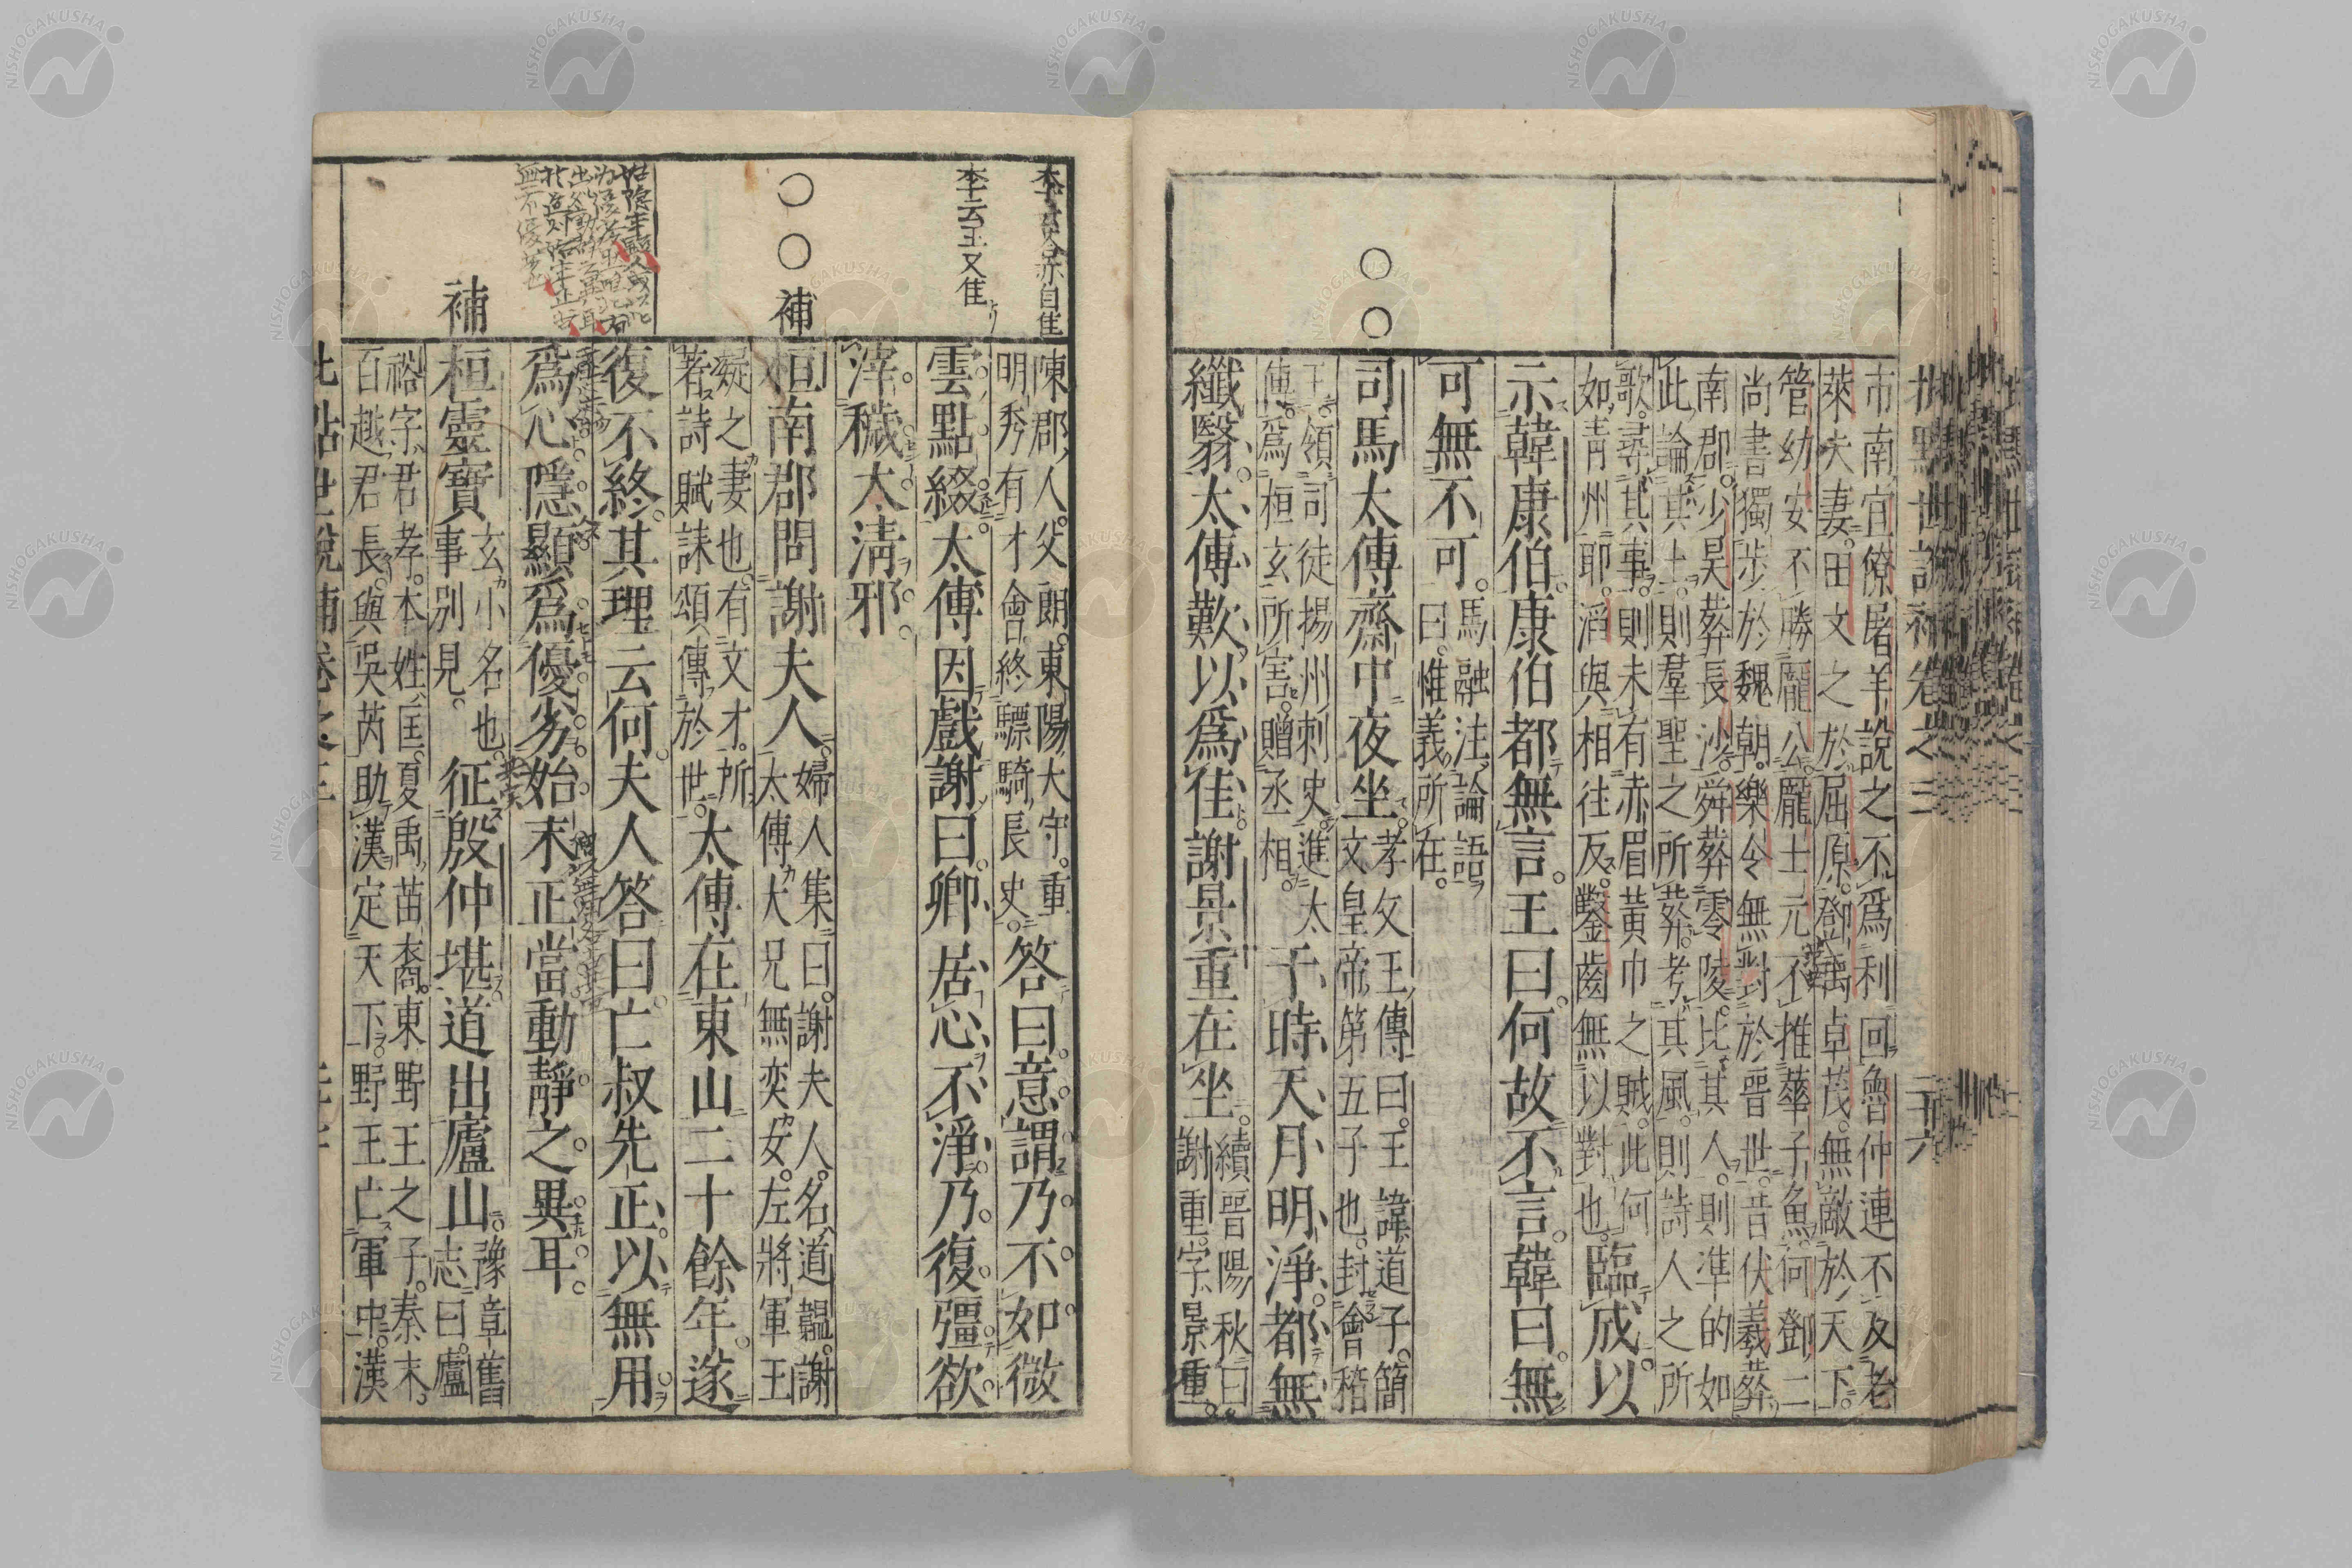 批點世說補卷之三 二十六
市南宜僚屠羊說之不爲利回魯仲連不及老
萊夫妻田文之於屈原。鄧禹卓茂無敵於天下。
管幼安不勝龐公龐士元不推華子魚。何鄧二
尚書獨步於魏朝。樂令無對於晉世。昔伏羲葬
南郡。少昊葬長沙。舜葬零陵。比其人。則準的如
此。論其土。則羣聖之所葬。考其風。則詩人之所
歌。尋其事。則未有赤眉黃巾之賊。此何
如青州耶。滔與相往反。鑿齒無以對也。
臨成以
示韓康伯。康伯都無言。王曰。何故不言。韓曰。無
可無不可。
馬融注論語
曰。惟義所在。
司馬太傅齋中夜坐。
孝文王傳曰。王諱道子。簡
文皇帝第五子也。封會稽
王。領司徒揚州刺史。進太
傅。爲桓玄所害。贈丞相。
于時天月明淨。都無
纖翳。太傅歎以爲佳。謝景重在坐。
續晉陽秋曰
謝重。字景重。
陳郡人。父朗。東陽太守。重
明秀有才會。終驃騎長史。
答曰。意謂乃不如微
雲點綴。太傅因戲謝曰。卿居心不淨。乃復彊欲
滓穢太淸邪。
桓南郡問謝夫人。
婦人集曰。謝夫人。名道韞。謝
太傅大兄無奕女。左將軍王
凝之妻也。有文才。所
著詩賦誄頌。傳於世。
太傅在東山二十餘年。遂
復不終。其理云何。夫人答曰。亡叔先正。以無用
爲心。隱顯爲優劣。始末正當動靜之異耳。
桓靈寶
玄小名也。
事別見。
征殷仲堪。道出廬山。
豫章舊
志曰。廬
裕字君孝。本姓匡。夏禹苗裔。東野王之子。秦末。
百越君長。與吳芮助漢定天下。野王亡軍中。漢
李云亦自佳
李云王又佳
補
補